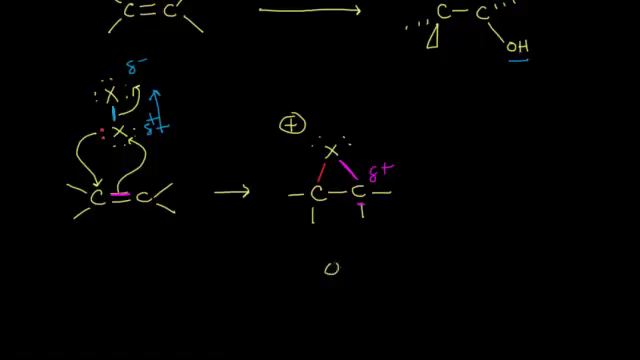 C = C
C - C
OH
δ-
: X :
δ+
: X :
C = C
+
X
δ+
- C - C -
O